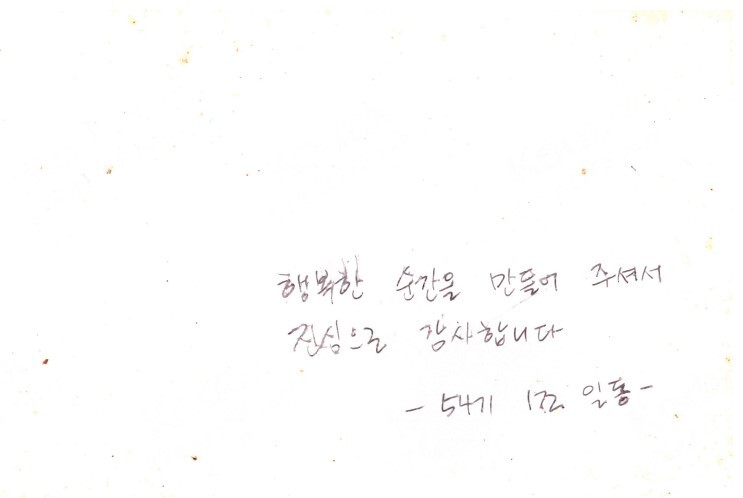 행복한 순간을 만들어 주셔서
진심으로 감사합니다
- 54기 1조 일동 -